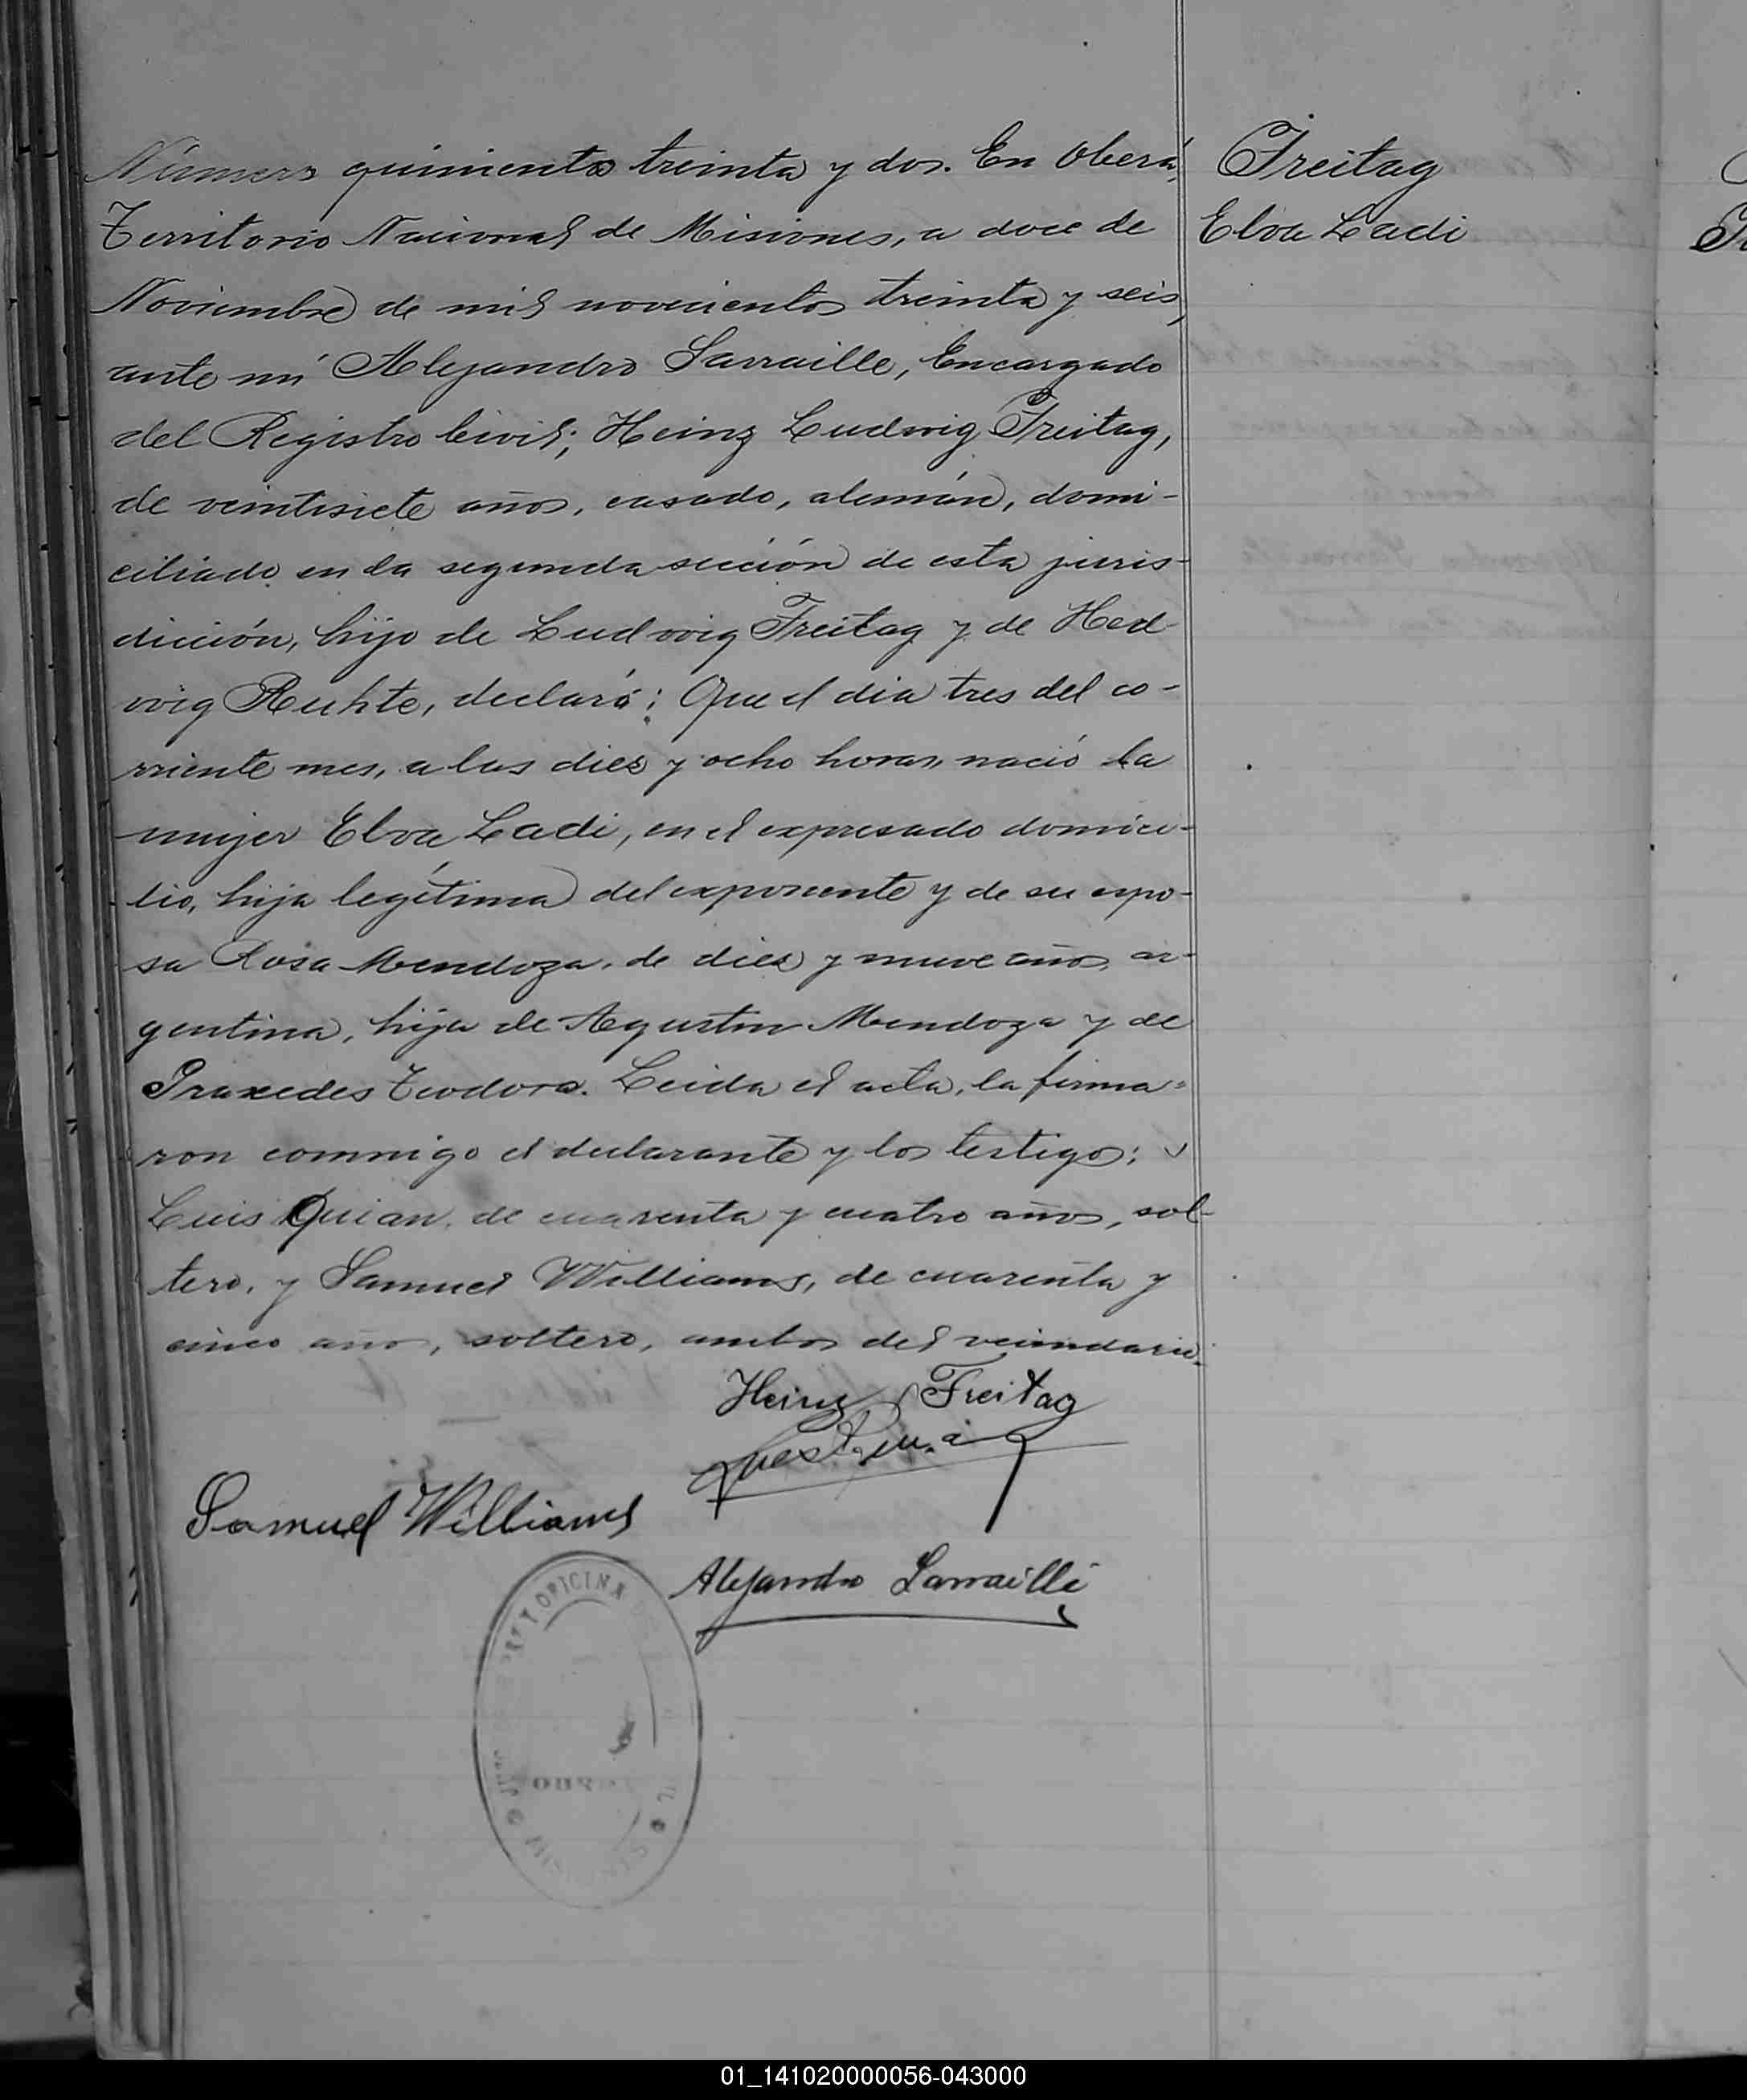 Número quinientos treinta y dos. En Oberá,
Territorio Nacional de Misiones, a doce de
Noviembre de mil novecientos treinta y seis,
ante mí Alejandro Sarraille, Encargado
del Registro Civil; Heinz Ludwig Freitag,
de veintisiete años, casado, alemán, domi-
ciliado en la segunda sección de esta juris-
dicción, hijo de Ludwig Freitag y de Hed
wig Ruhte, declaró: Que el dia tres del co-
rriente mes, a las diez y ocho horas, nació la
mujer Elva Ladi, en el expresado domici-
lio, hija legítima del exponente y de su espo-
sa Rosa Mendoza, de diez y nueve años, ar-
gentina, hija de Agustin Mendoza y de
Praxedes Teodora. Leida el acta, la firma-
ron conmigo el declarante y los testigos:
Luis Quian, de cuarenta y cuatro años, sol-
tero, y Samuel Williams, de cuarenta y
cinco años, soltero, ambos del vecindario.
Heinz Freitag
Samuel Williams
Alejandro Sarraille
OFICINA
Freitag
Elva Ladi
01_141020000056-043000